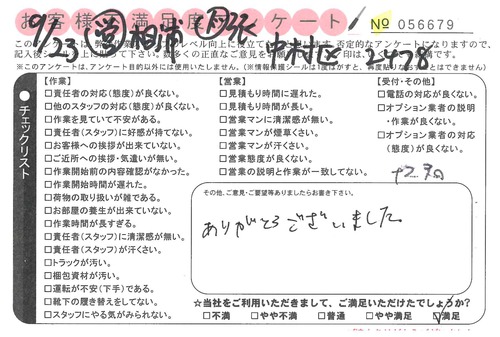 お客様満足度アンケート
№ 056679
9/23 営 相浦 中村区 2478
※このアンケートは、アンケート目的以外には使用いたしません。
チェックリスト
【作業】
□責任者の対応(態度)が良くない。
□他のスタッフの対応(態度)が良くない。
□作業を見ていて不安がある。
□責任者(スタッフ)に好感が持てない。
□お客様への挨拶が出来ていない。
□ご近所への挨拶・気遣いが無い。
□作業開始前の内容確認がなかった。
□作業開始時間が遅れた。
□荷物の取り扱いが雑である。
□お部屋の養生が出来ていない。
□作業時間が長すぎる。
□責任者(スタッフ)に清潔感が無い。
□責任者(スタッフ)が汗くさい。
□トラックが汚い。
□梱包資材が汚い。
□運転が不安(下手)である。
□靴下の履き替えをしてない。
□スタッフにやる気がみられない。
【営業】
□見積もり時間に遅れた。
□見積もり時間が長い。
□営業マンに清潔感が無い。
□営業マンが煙草くさい。
□営業マンが汗くさい。
□営業態度が良くない。
□営業の説明と作業が一致してない。
【受付・その他】
□電話の対応が良くない。
□オプション業者の説明
・作業が良くない。
□オプション業者の対応
(態度)が良くない。
その他、ご意見・ご要望等ありましたらお書き下さい。
ありがとうございました
☆当社をご利用いただきまして、ご満足いただけたでしょうか?
□不満 □やや不満 □普通 □やや満足 □満足